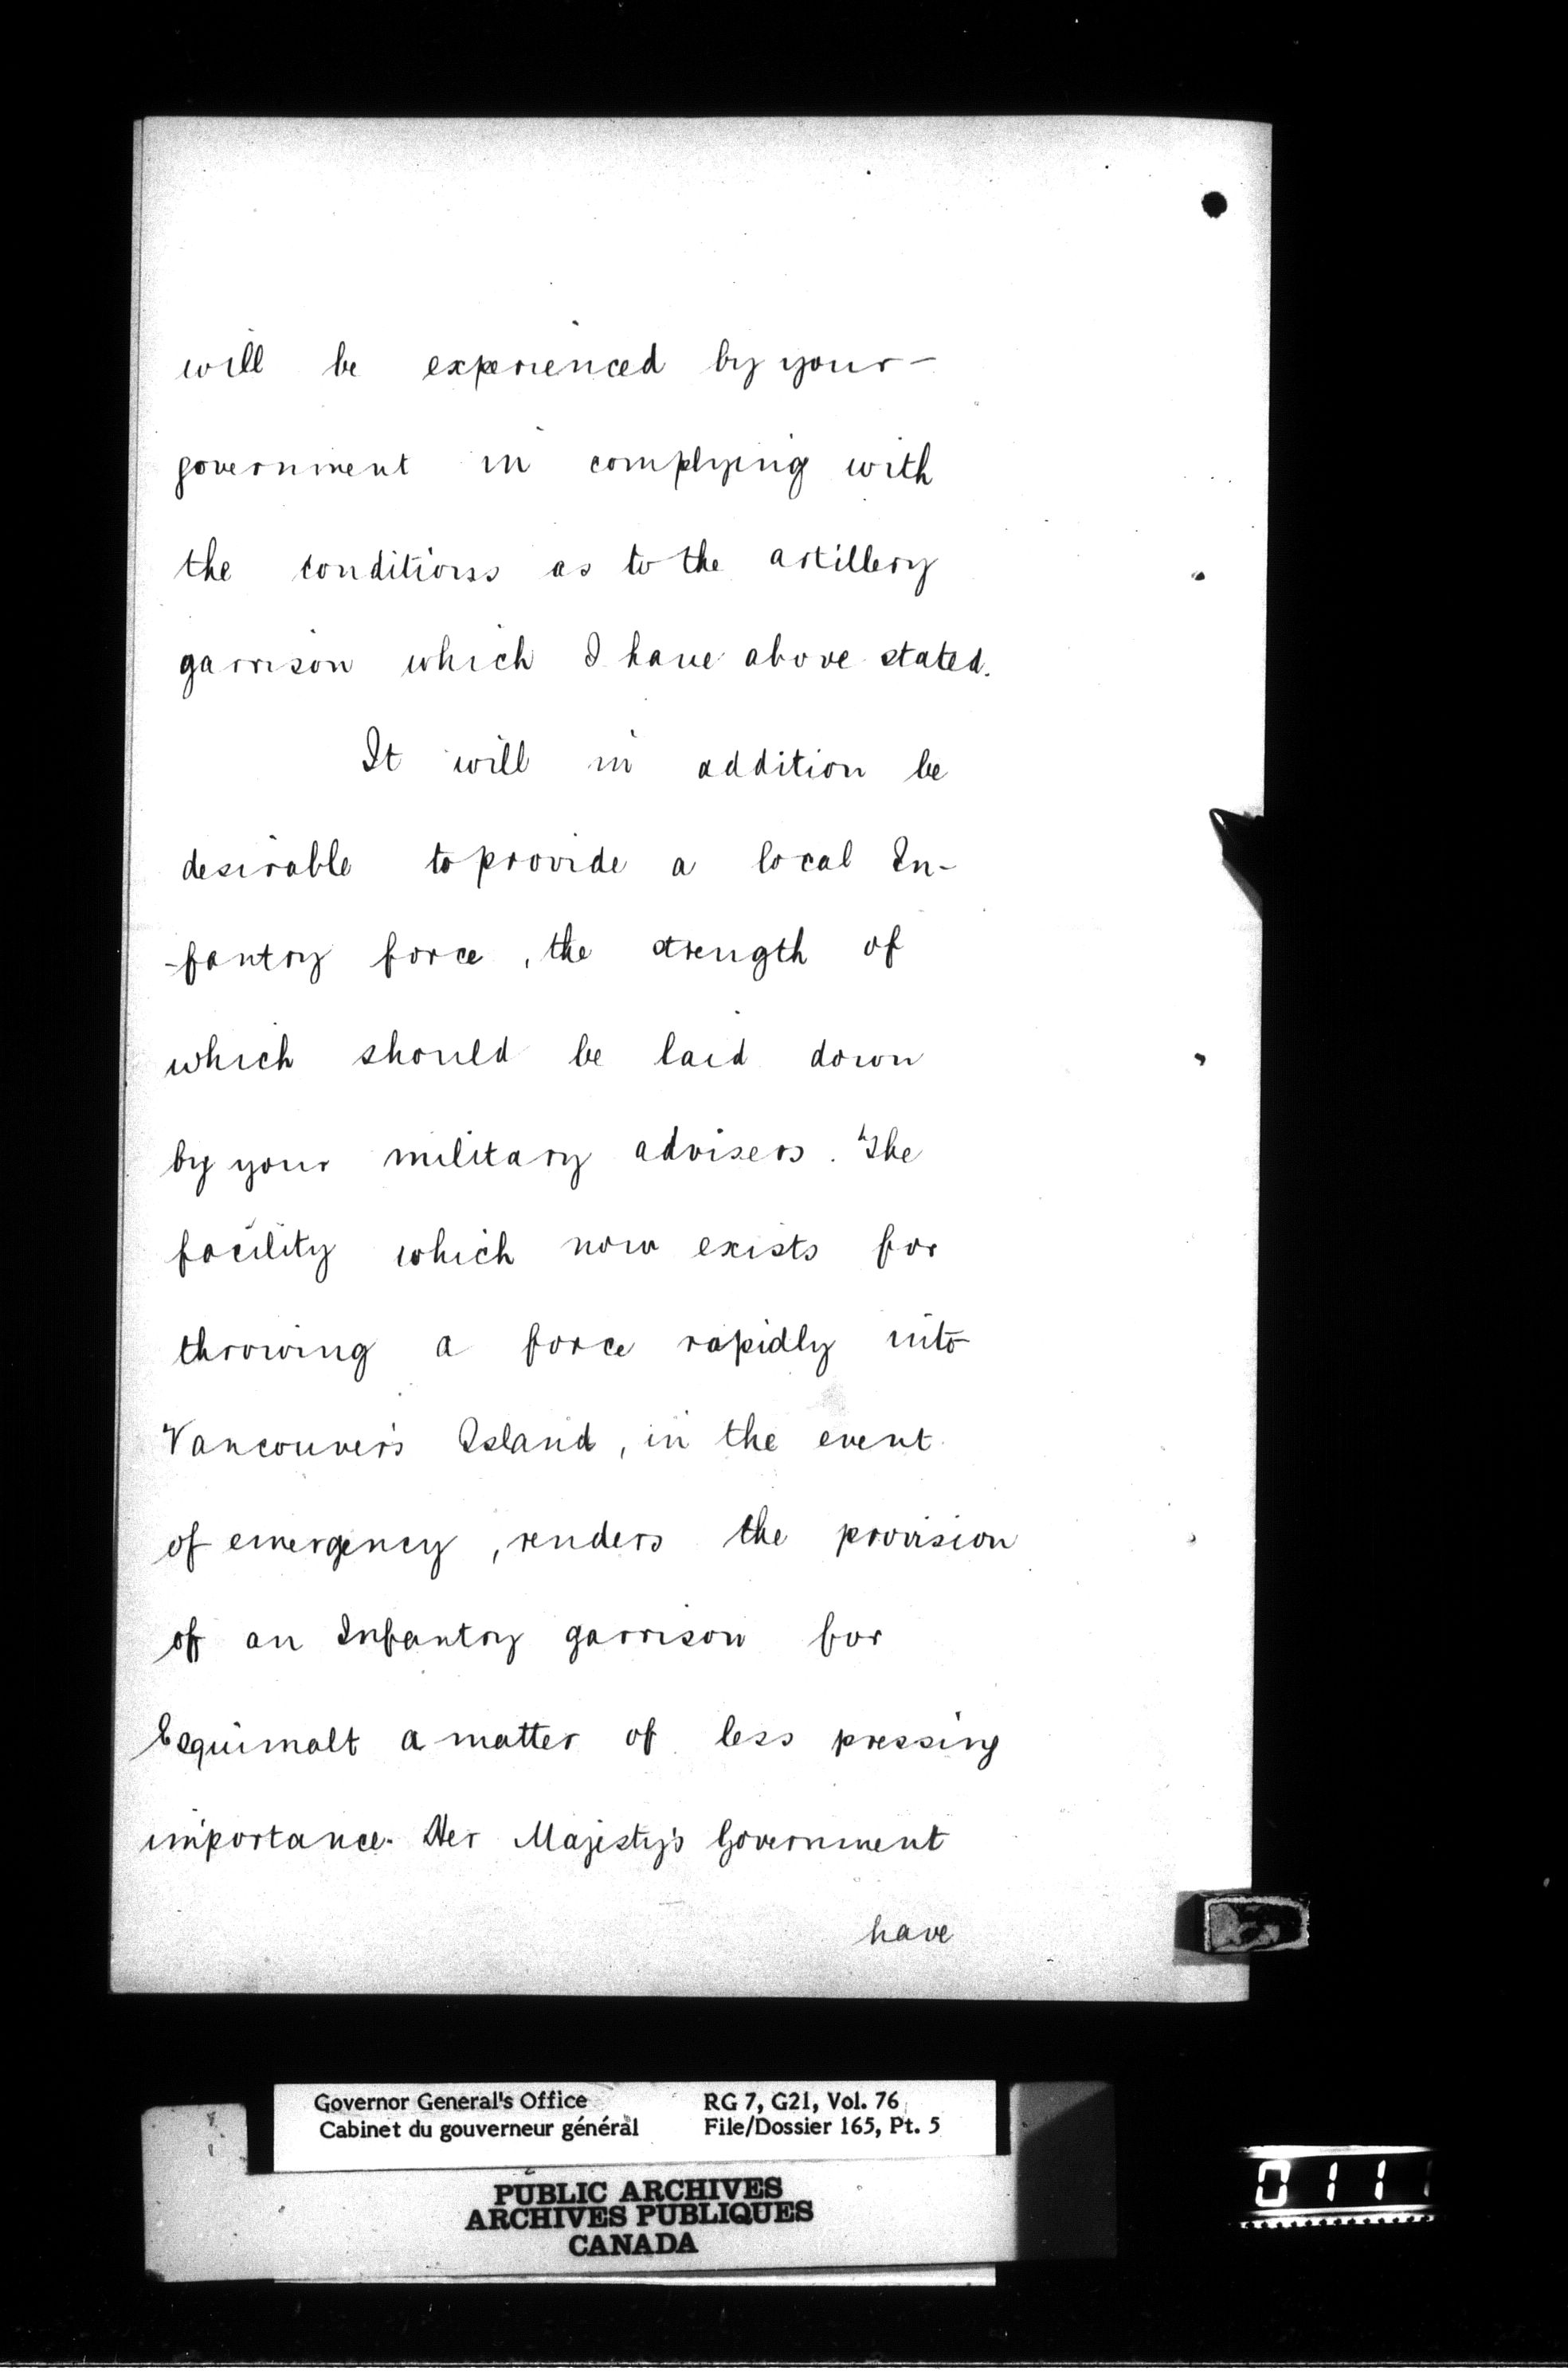 will be experienced by your-
government in complying with
the conditions as to the artillery
garrison which I have above stated.
It will in addition be
desirable to provide a local In-
-fantry force, the strength of
which should be laid down
by your military advisers. The
facility which now exists for
throwing a force rapidly into
Vancouver's Island, in the event
of emergency, renders the provision
of an Infantry garrison for
Esquimalt a matter of less pressing
importance. Her Majesty's Government
have
Governor General's Office RG 7, G21, Vol. 76
Cabinet du gouverneur général File/Dossier 165, Pt. 5
PUBLIC ARCHIVES
ARCHIVES PUBLIQUES
CANADA
011